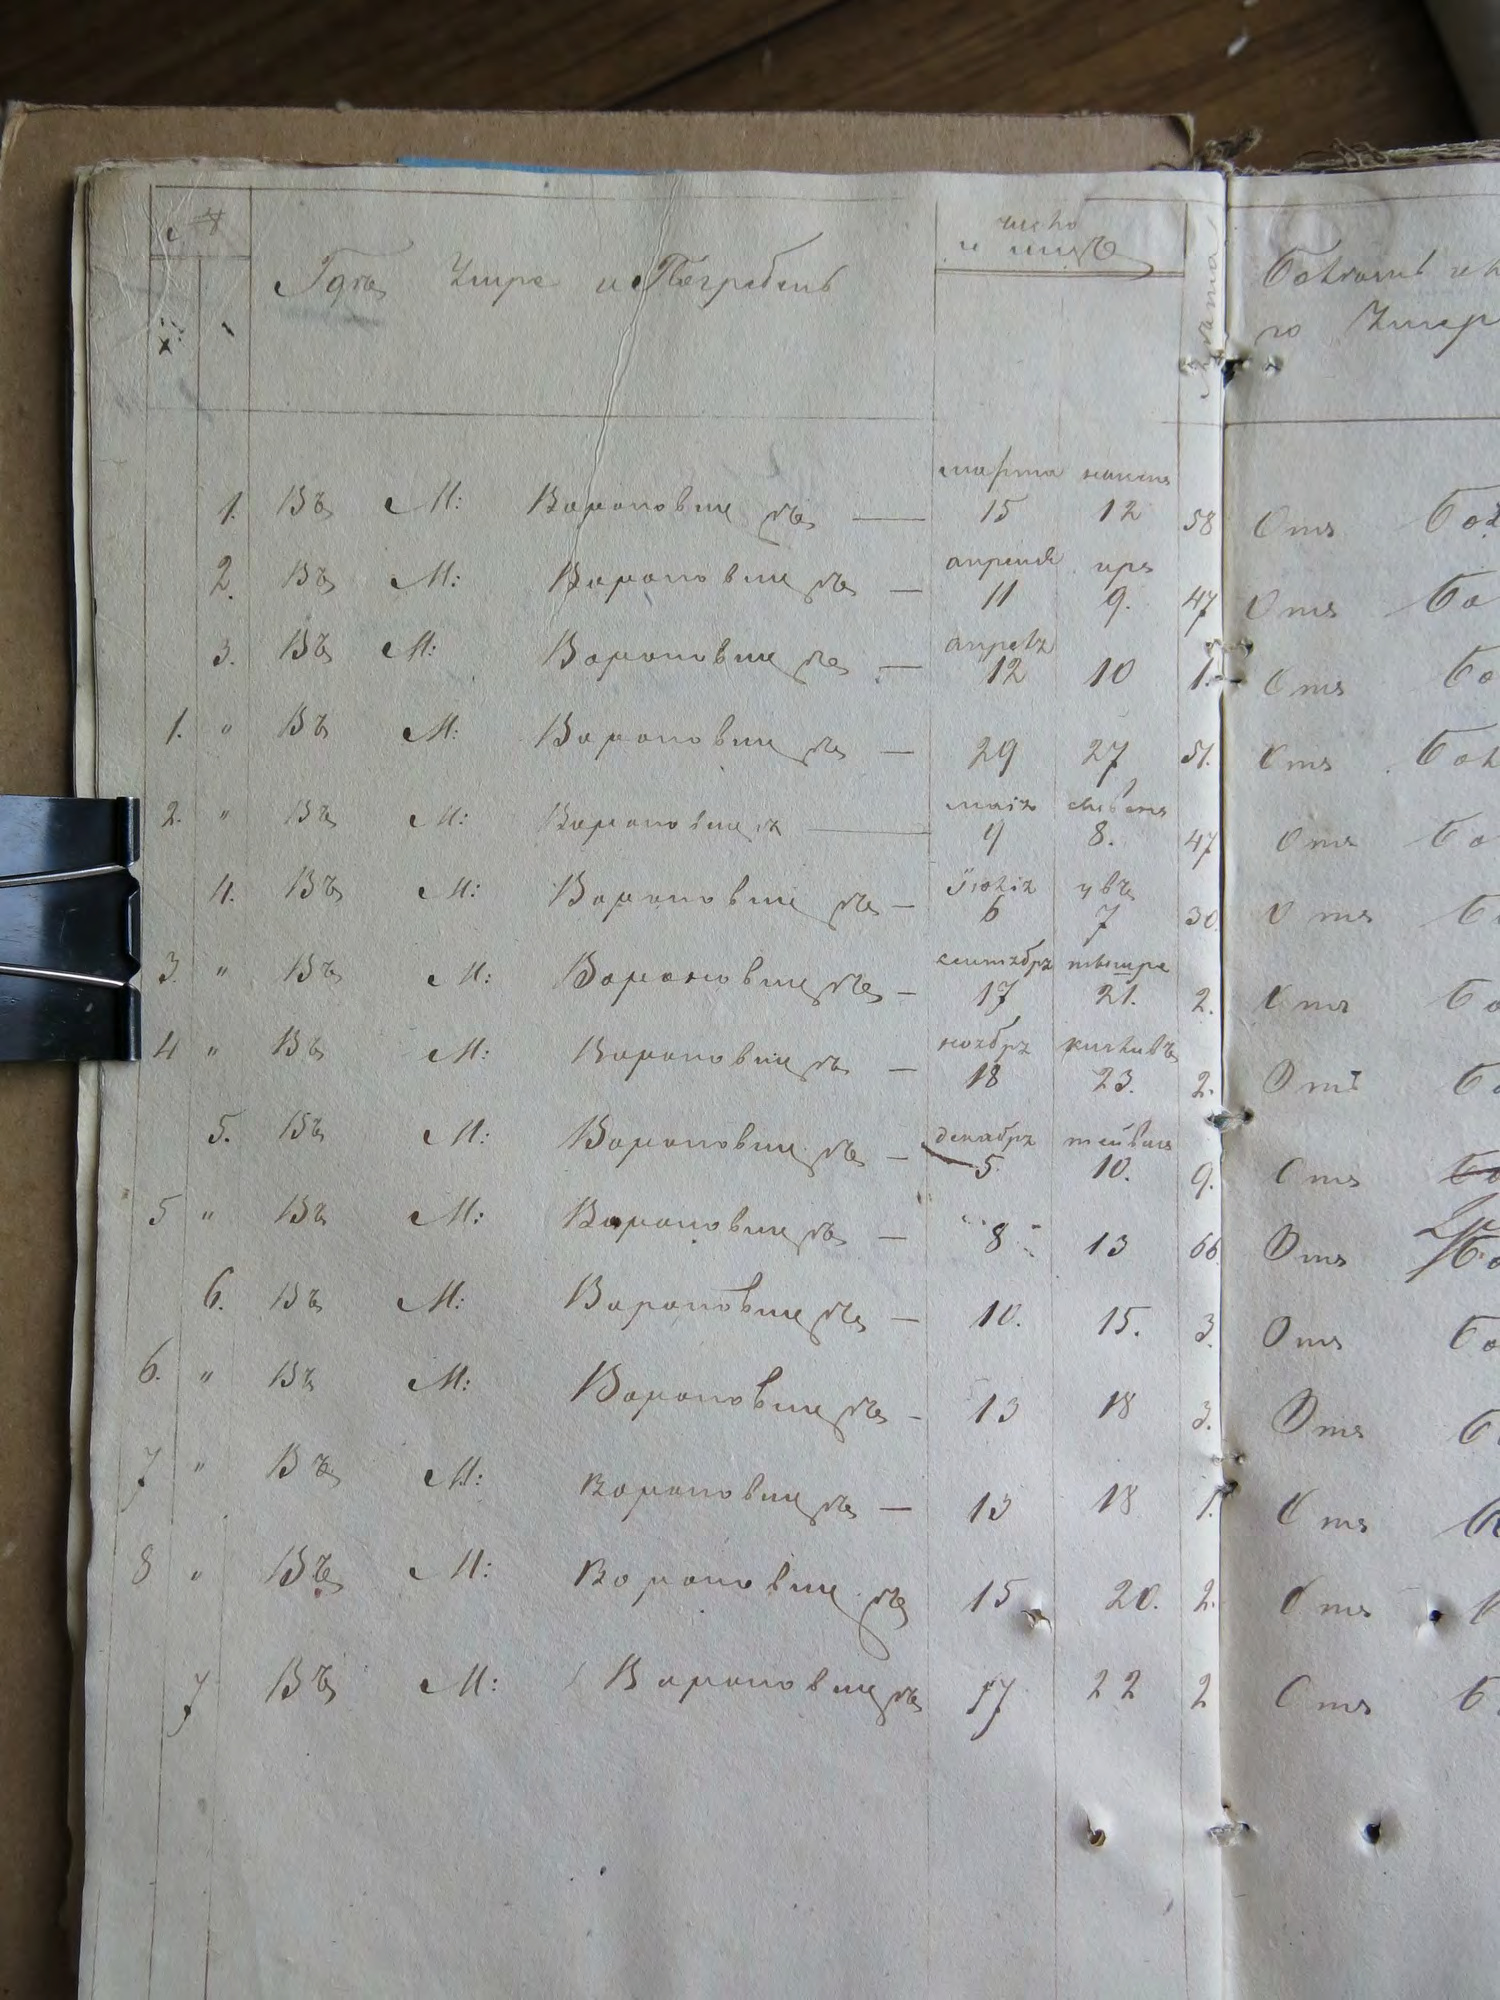 №
число
и мѣсяц
Гдѣ Умре и Погребенъ
1. Въ М: Вороновицѣ — марта 15 нисанъ 12 58 Отъ
2. Въ М: Вороновицѣ — апреля 11 иръ 9. 47 Отъ
3. Въ М: Вороновицѣ — апреля 12 10 1. Отъ
1. " Въ М: Вороновицѣ — 29 27 51. Отъ
2. " Въ М: Вороновицѣ — маія 9 сивонъ 8. 47 Отъ
4. Въ М: Вороновицѣ — Іюлія 6 7 30 Отъ
3. " Въ М: Вороновицѣ — сентября 17 21. 2. Отъ
4 " Въ М: Вороновицѣ — ноября 18 кислывъ 23. 2. Отъ
5. Въ М: Вороновицѣ — декабря 5. тейвасъ 10. 9. Отъ
5 " Въ М: Вороновицѣ — 8 13 66 Отъ
6. Въ М: Вороновицѣ — 10. 15. 3. Отъ
6. " Въ М: Вороновицѣ — 13 18 3. Отъ
7 " Въ М: Вороновицѣ — 13 18 1. Отъ
8 " Въ М: Вороновицѣ 15 20. 2. Отъ
7 Въ М: Вороновицѣ 17 22 2 Отъ